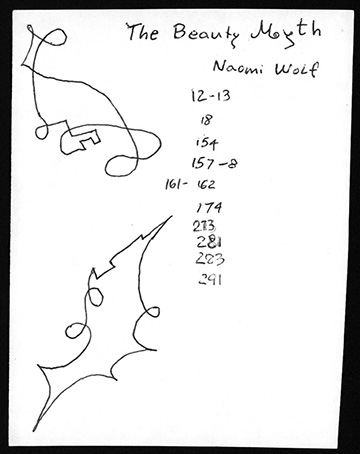 The Beauty Myth
Naomi Wolf
12-13
18
154
157-8
161-162
174
213
281
283
291